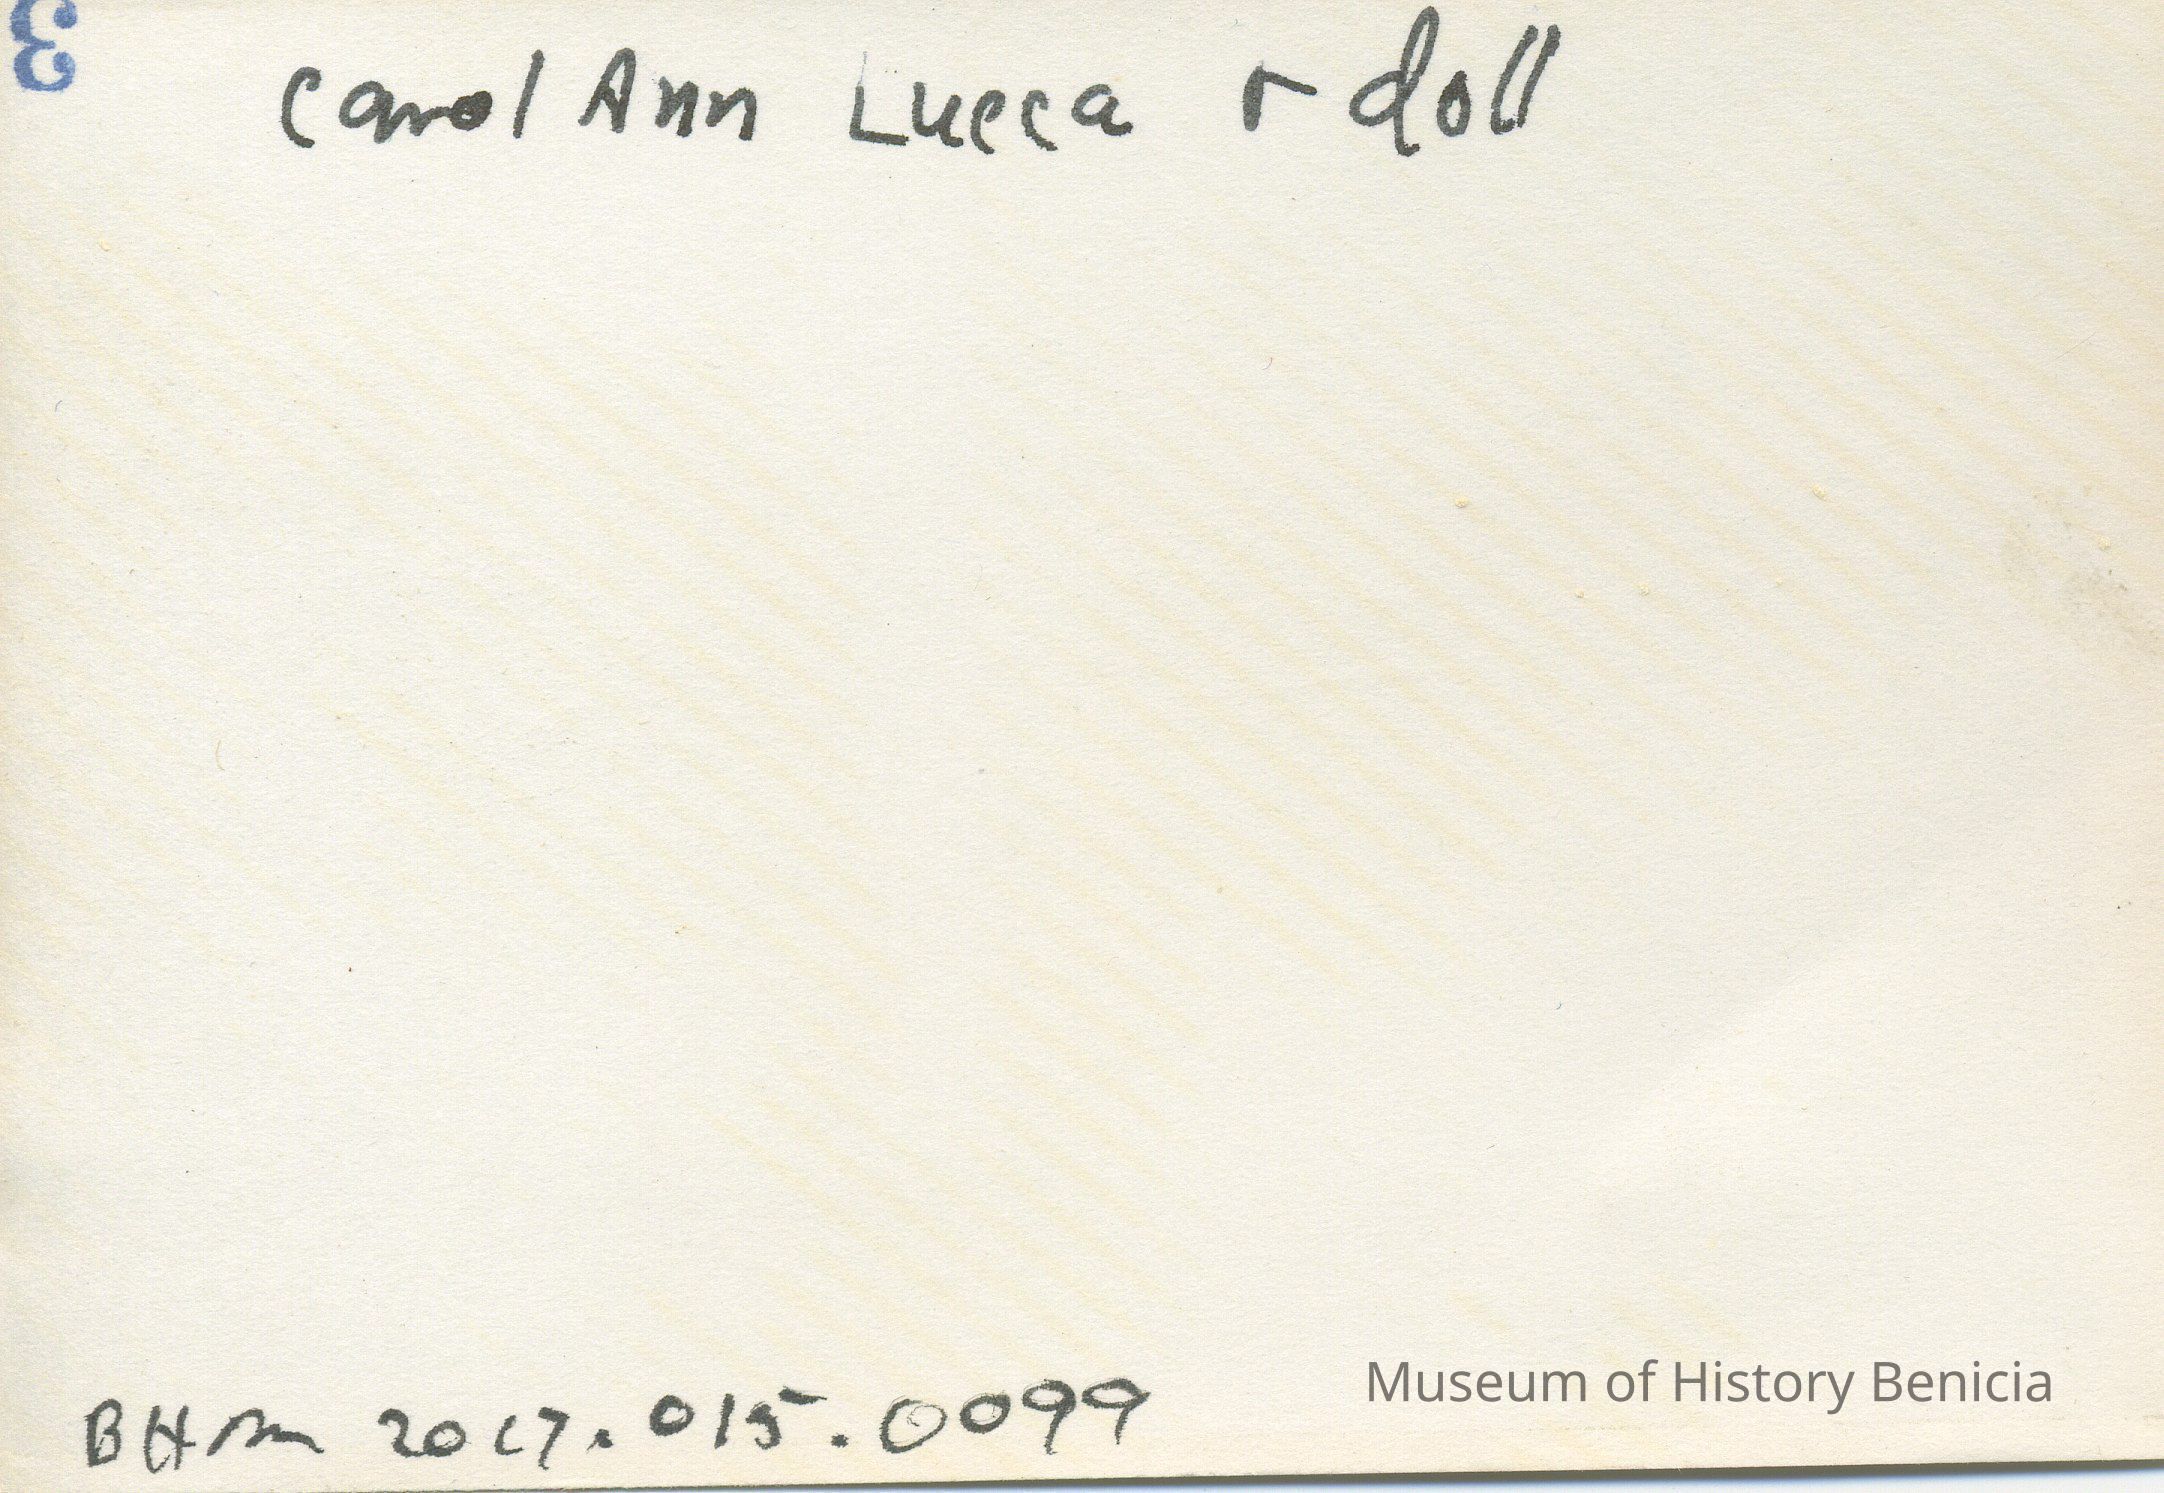 3
Carol Ann Lucca + doll
BHM 2017.015.0099
Museum of History Benicia